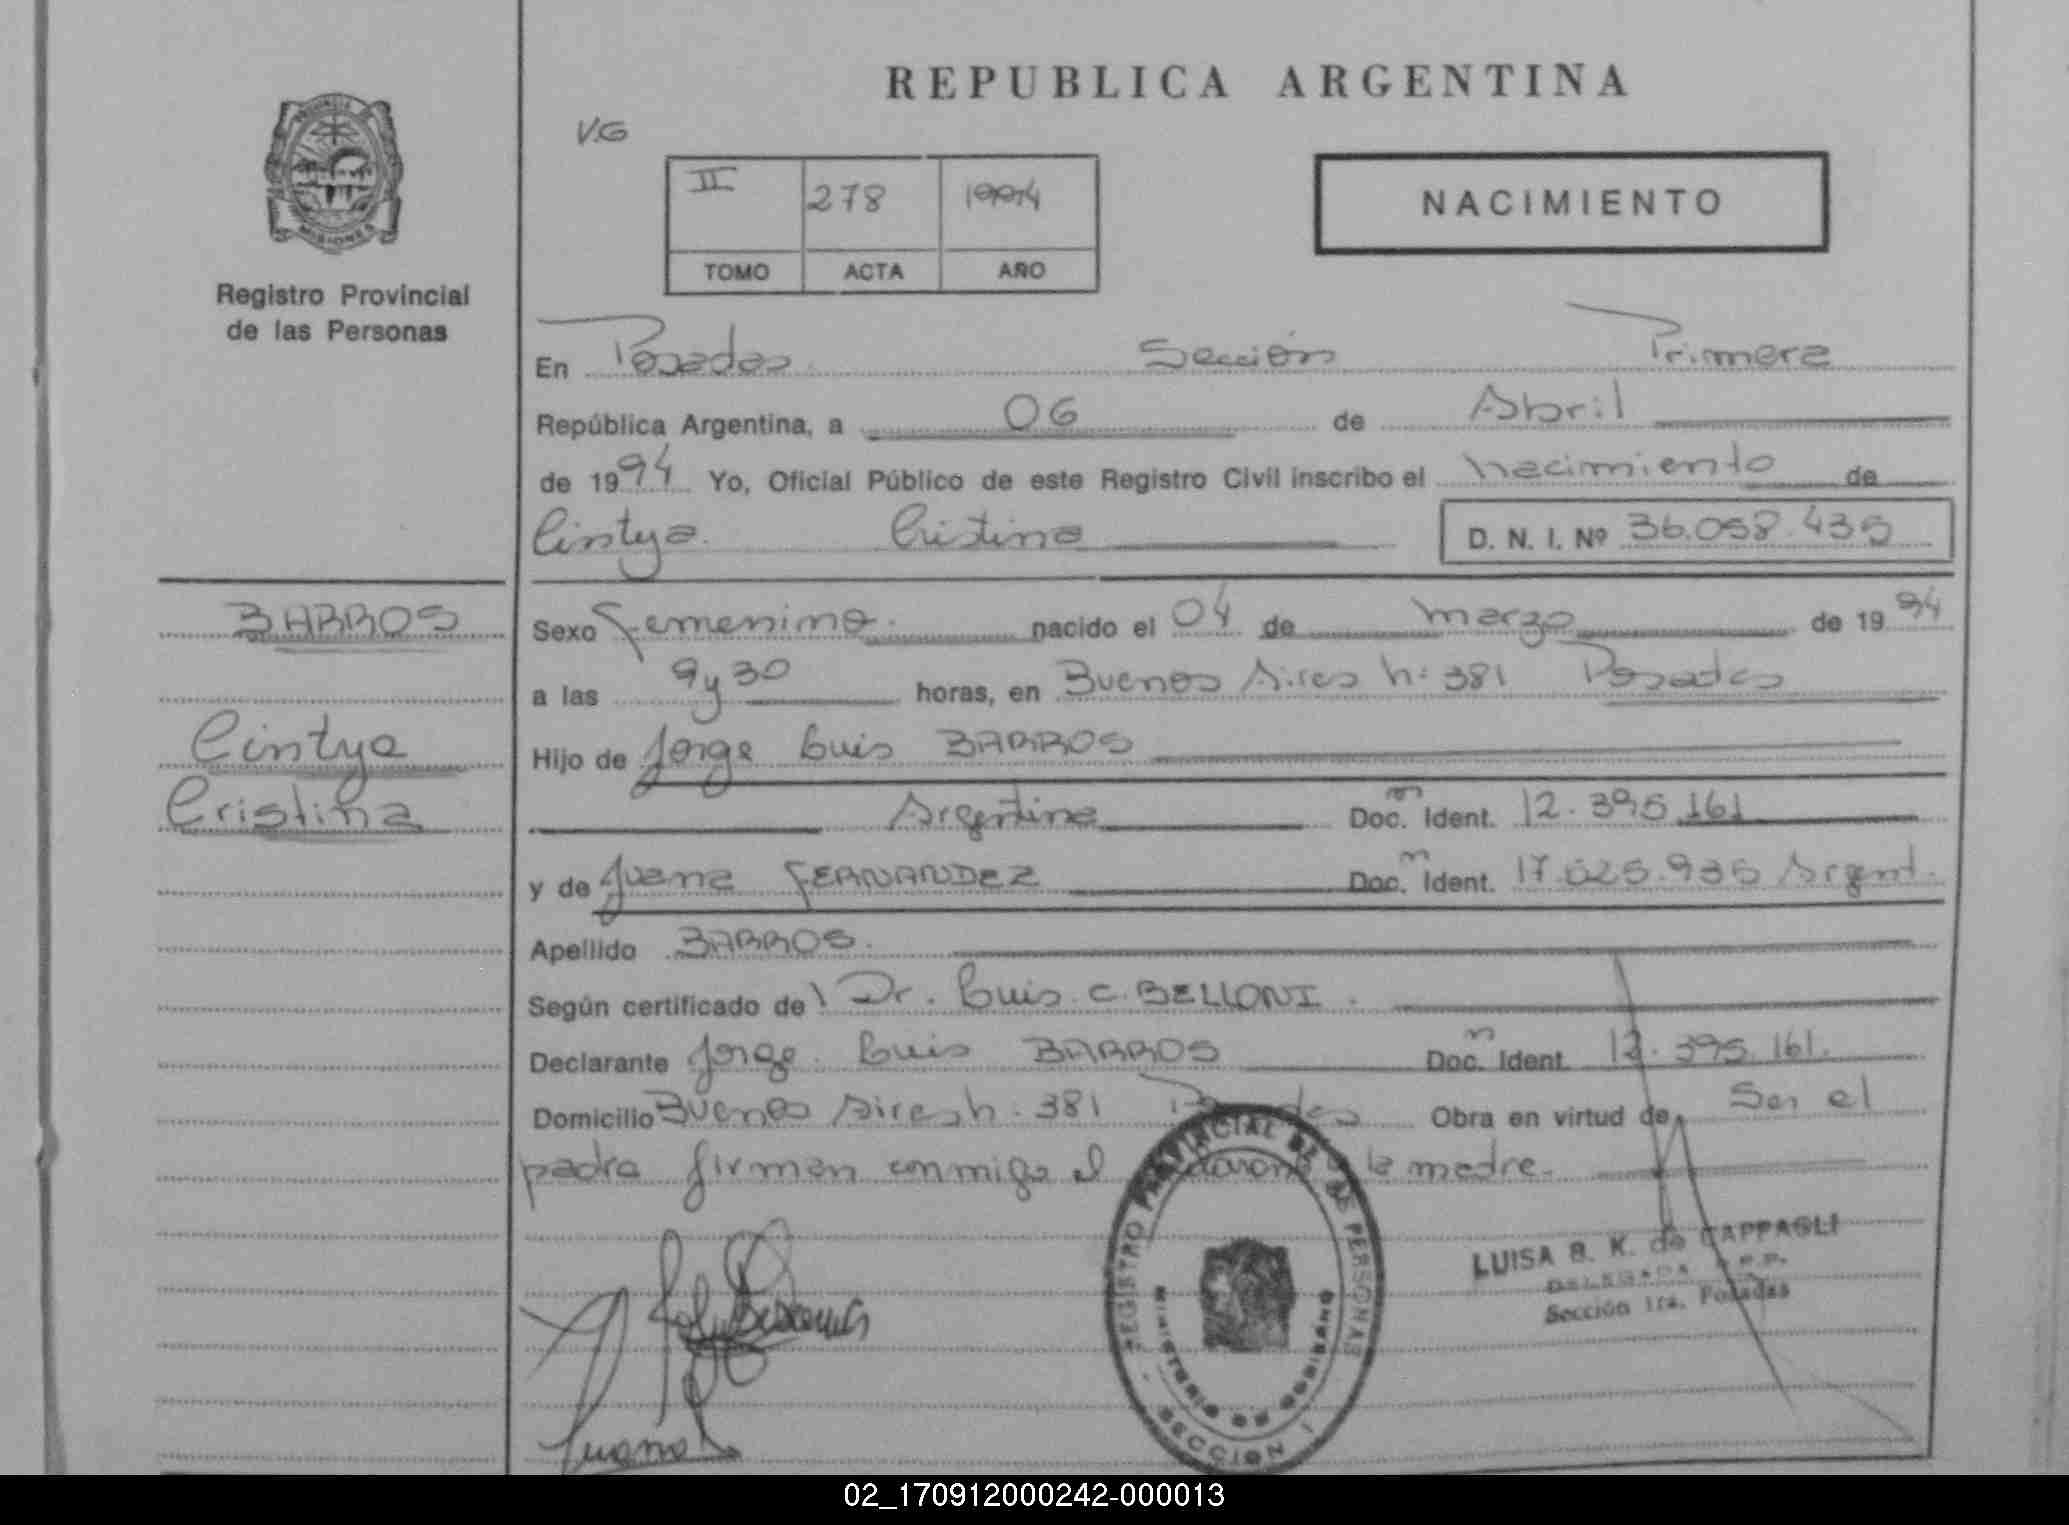 REPUBLICA ARGENTINA
PROVINCIA
MISIONES
Registro Provincial
de las Personas
V.G
II 278 1994
TOMO ACTA AÑO
NACIMIENTO
En Posadas Sección Primera
República Argentina, a 06 de Abril
de 1994 Yo, Oficial Público de este Registro Civil inscribo el nacimiento de
Cintya Cristina D. N. I. Nº 36.058.435
BARROS
Cintya
Cristina
Sexo Femenino nacido el 04 de marzo de 1994
a las 9 y 30 horas, en Buenos Aires n: 381 Posadas
Hijo de Jorge Luis BARROS
Argentina Doc. Ident. 12.395.161
y de Juana FERNANDEZ Doc. Ident. 17.025.935 Argent.
Apellido BARROS.
Según certificado de Dr. Luis C. BELLONI.
Declarante Jorge Luis BARROS Doc. Ident. 12.395.161.
Domicilio Buenos Aires n: 381 Posadas Obra en virtud de Ser el
padre firman conmigo el la madre.
REGISTRO PROVINCIAL DE LAS PERSONAS
MINISTERIO DE GOBIERNO
SECCION I
LUISA B. K. de CAPPAGLI
DELEGADA R.P.P.
Sección 1ra. Posadas
Juana
02_170912000242-000013